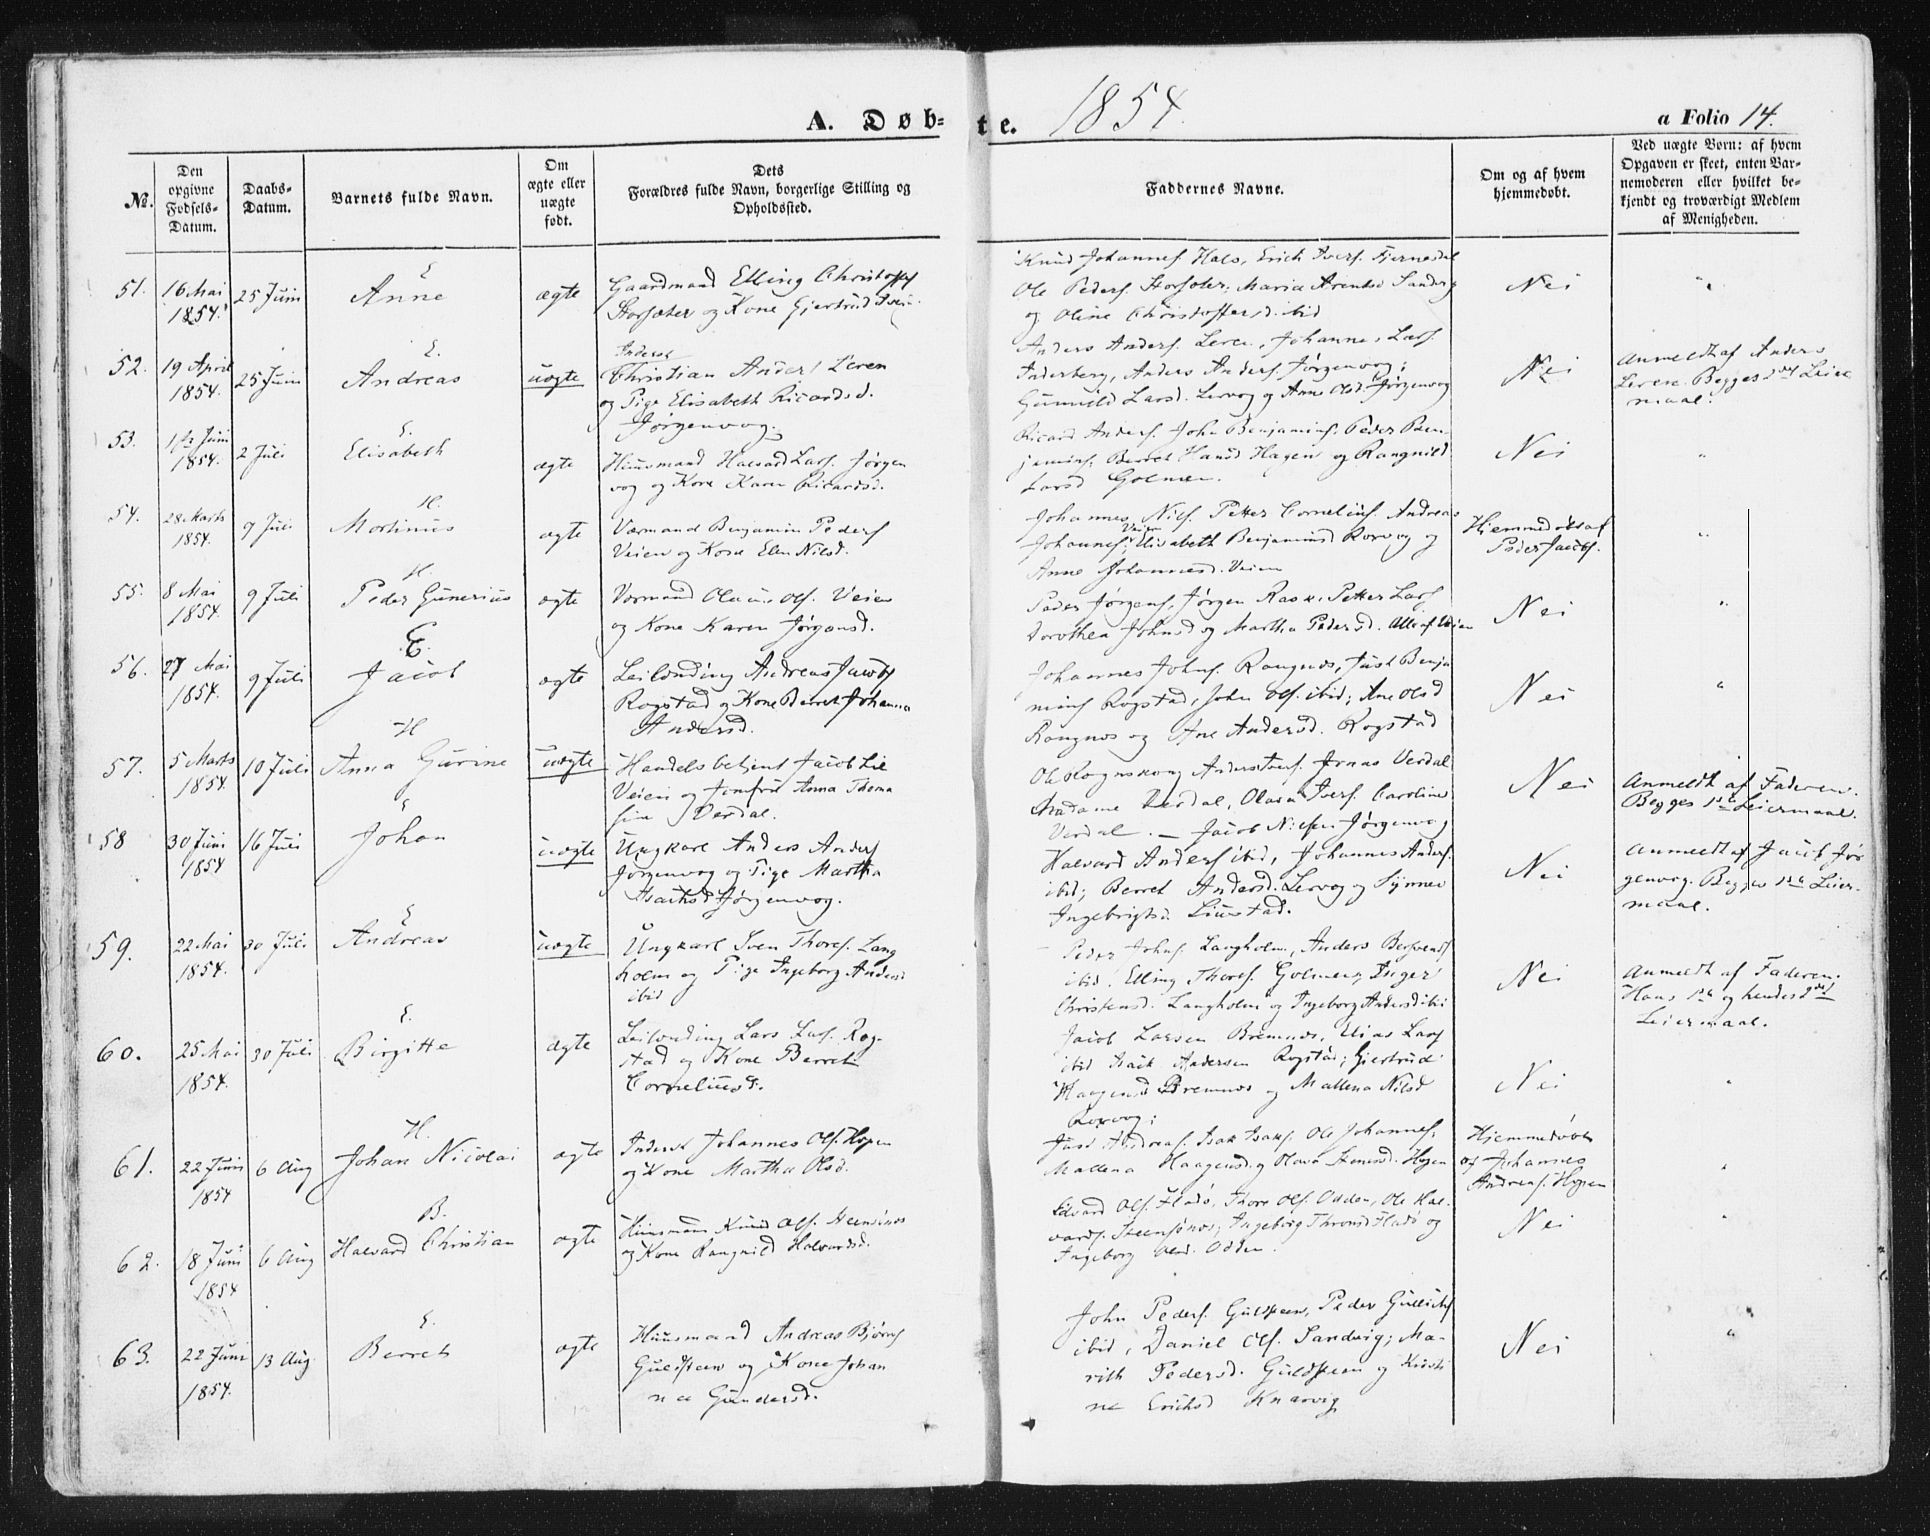 A. Døb- te. 1854. a Folio 14.
№.
Den opgivne Fødsels-Datum.
Daabs-Datum.
Barnets fulde Navn.
Om ægte eller uægte født.
Dets Forældres fulde Navn, borgerlige Stilling og Opholdssted.
Faddernes Navne.
Om og af hvem hjemmedøbt.
Ved uægte Børn: af hvem Opgaven er skeet, enten Barnemoderen eller hvilket bekjendt og troværdigt Medlem af Menigheden.
51. 16 Mai 1854. 25 Juni E. Anne ægte
Gaardmand Elling Christoffs
Storsæter og Kone Gjertrud
Knud Johannes. Hals, Erich Ivers.
Ole Peders. Storsæter, Maria Arentsd. Sandvig
og Oline Christoffersd. ibid
Nei "
52. 19 April 1854. 25 Juni E. Andreas uægte
Inderst
Christian Anders. Leren
og Pige Elisabeth Ricardsd.
Jørgenvog.
Anders Anders. Leren, Johannes Lars.
Inderberg, Anders Anders. Jørgenvog;
Gunnild Larsd. Lervog og Anne Olsd. Jørgenvog
Nei
Anmeldt af Anders
Leren. Begges 2det Leier
maal.
53. Juni 1854. 2 Juli E. Elisabeth ægte
Huusmand Halvard Lars. Jørgen
vog og Kone Karen Ricardsd.
Ricard Anders. John Benjamins. Peder Ben
jamins. Berret Hansd Hagen og Rangnild
Larsd Golmen.
Nei "
54. 28 Marts 1854. 9 Juli H. Mortinus ægte
Værmand Benjamin Peders
Veien og Kone Elen Nilsd.
Johannes Nils. Petter Cornelius. Andreas
Johannes. Veien; Elisabeth Benjaminsd Korvog og
Anne Johannesd. Veien
Hjemmedøbt af
Peder Jacobs.
"
55. 8 Mai 1854. 9 Juli H. Peder Gunerius ægte
Værmand Olaus Ols. Veien
og Kone Karen Jørgensd.
Peder Jørgens. Jørgen Rask. Petter Lars
Dorothea Johnsd og Martha Pedersd. Alle af Veien
Nei "
56. 27 Mai 1854. 9 Juli E. Jacob ægte
Leilending Andreas Jacobs
Rogstad og Kone Berret Johanna
Andersd.
Johannes Johns. Rangnos, Just Benja
mins Rogstad, John Ols. ibid; Ane Olsd
Rangnos og Ane Andersd. Rogstad
Nei "
57. 5 Marts 1854. 10 Juli H Anna Gurine uægte
Handelsbetjent Jacob Lie
Veien og Jomfru Anna Thoma
sine Verdal.
Anders Ivers. Jonas Verdal
Madame Verdal, Olava Ivers. Caroline
Verdal. —
Nei
Anmeldt af Faderen.
Begges 1ste Leiermaal.
58 30 Juni 1854 16 Juli E Johan uægte
Ungkarl Anders Anders
Jørgenvog og Pige Martha
Isachsd Jørgenvog.
Jacob Nielsen Jørgenvog
Halvard Anders ibid, Johannes Anders.
ibid; Berret Andersd. Lervog og Synnev
Ingebrigtsd. Liustad.
Nei
Anmeldt af Jacob Jør
genvog. Begges 1ste Leier-
maal.
59. 22 Mai 1854. 30 Juli E Andreas uægte
Ungkarl Sven Thores. Lang
holm og Pige Ingeborg Andersd
ibid
Peder Johns. Langholm, Anders Bersvends
ibid. Elling Thores. Golmen, Inger
Christensd. Langholm og Ingeborg Andersd ibi
Nei
Anmeldt af Faderen.
Hans 1ste og hendes 2det
Leiermaal.
60. 25 Mai 1854. 30 Juli E. Birgitte ægte
Leilending Lars Lars. Rog-
stad og Kone Berret
Corneliusd.
Jacob Larsen Bremnes, Elias Lars
ibid Isak Andersen Rogstad; Giertrud
Haagensd Bremnes og Mallena Nilsd
Korvog;
Nei "
61. 22 Juni 1854 6 Aug H. Johan Nicolai ægte
Inderst Johannes Ols. Hopen
og Kone Martha Olsd.
Just Andreas. Isak Isaks. Ole Johannes.
Mallena Haagensd. og Olava Hopen
Hjemmedøbt
af Johannes
Andreas. Hopen
"
62. 18 Juni 1854 6 Aug B. Halvard Christian ægte
Huusmand Knud Ols. Steensønes
og Kone Rangnild Halvardsd.
Edvard Ols. Fladø, Thore Ols. Odden, Ole Hal-
vards. Steensønes; Ingeborg Thronsd Fladø og
Ingeborg Olsd. Odden.
Nei "
63. 22 Juni 1854. 13 Aug. E. Berret ægte
Huusmand Andreas Bjørns
Guldsteen og Kone Johan
na Gundersd.
John Peders. Guldsteen, Peder Gulliks
ibid, Daniel Ols. Sandvig; Ma-
rith Pedersd. Guldsteen og Kristi
ne Erichsd Knarvig
Nei "